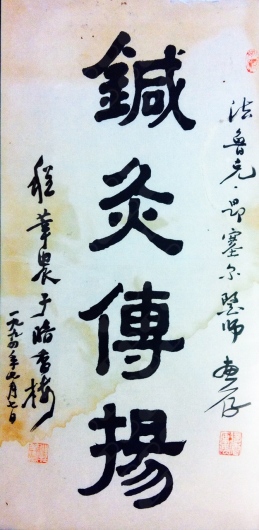 法鲁克·昂塞尔醫师惠存
鍼灸傳揚
程莘農于暗香樓
一九九四年七月七日